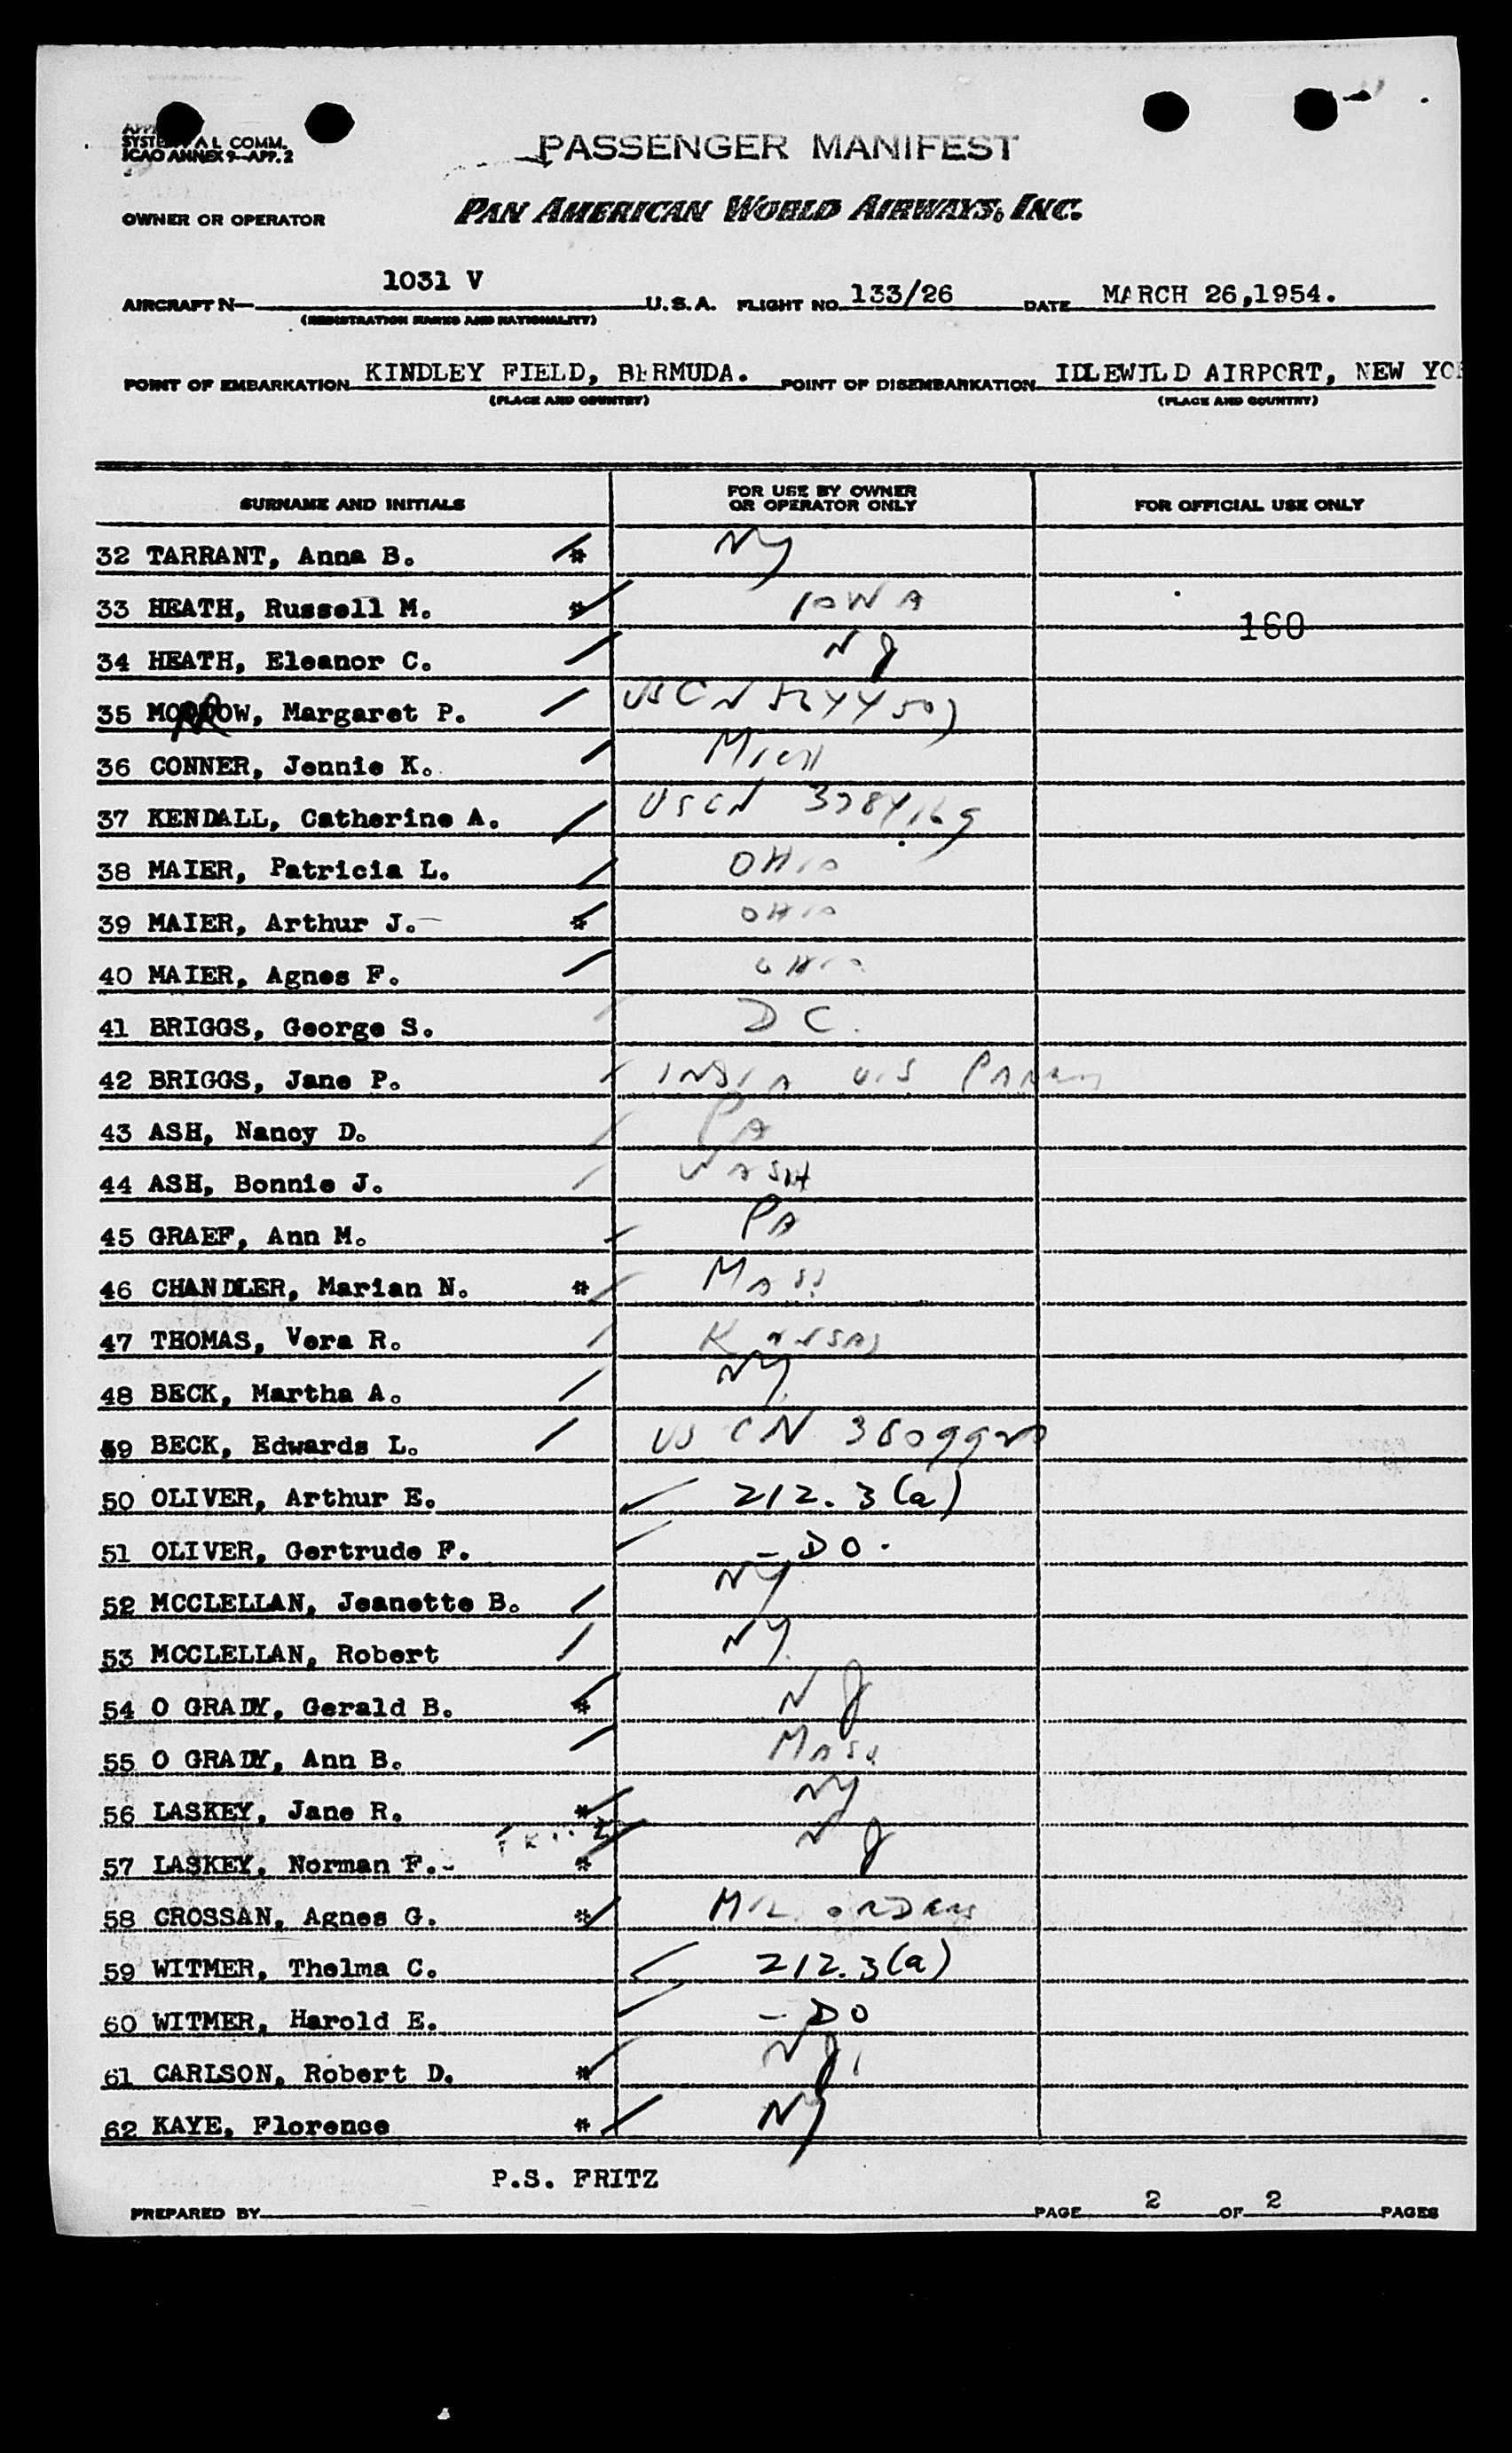 SYSTE AL COMM.
ICAO ANNEX 9—APP. 2
PASSENGER MANIFEST
OWNER OR OPERATOR PAN AMERICAN WORLD AIRWAYS, INC.
AIRCRAFT N— 1031 V U.S.A. FLIGHT NO. 133/26 DATE MARCH 26,1954.
(REGISTRATION MARKS AND NATIONALITY)
POINT OF EMBARKATION KINDLEY FIELD, BERMUDA. POINT OF DISEMBARKATION IDLEWILD AIRPORT, NEW YO
(PLACE AND COUNTRY) (PLACE AND COUNTRY)
SURNAME AND INITIALS FOR USE BY OWNER OR OPERATOR ONLY FOR OFFICIAL USE ONLY
32 TARRANT, Anna B. * NY
33 HEATH, Russell M. * IOWA
160
34 HEATH, Eleanor C. NJ
35 MORROW, Margaret P. USCN
36 CONNER, Jennie K. MICH
37 KENDALL, Catherine A. USCN
38 MAIER, Patricia L. OHIO
39 MAIER, Arthur J. * OHIO
40 MAIER, Agnes F. OHIO
41 BRIGGS, George S. DC.
42 BRIGGS, Jane P. INDIA U.S
43 ASH, Nancy D. PA
44 ASH, Bonnie J. WASH
45 GRAEF, Ann M. PA
46 CHANDLER, Marian N. * MASS
47 THOMAS, Vera R. KANSAS
48 BECK, Martha A. NY
49 BECK, Edwards L. US CN
50 OLIVER, Arthur E. 212.3(a)
51 OLIVER, Gertrude F. - DO.
52 MCCLELLAN, Jeanette B. NY
53 MCCLELLAN, Robert NY
54 O GRADY, Gerald B. * NJ
55 O GRADY, Ann B. MASS
56 LASKEY, Jane R. * NY
57 LASKEY, Norman F. * NJ
58 CROSSAN, Agnes G. * MIL ORDERS
59 WITMER, Thelma C. 212.3(a)
60 WITMER, Harold E. - DO
61 CARLSON, Robert D. * NJ
62 KAYE, Florence * NY
P.S. FRITZ
PREPARED BY PAGE 2 OF 2 PAGES